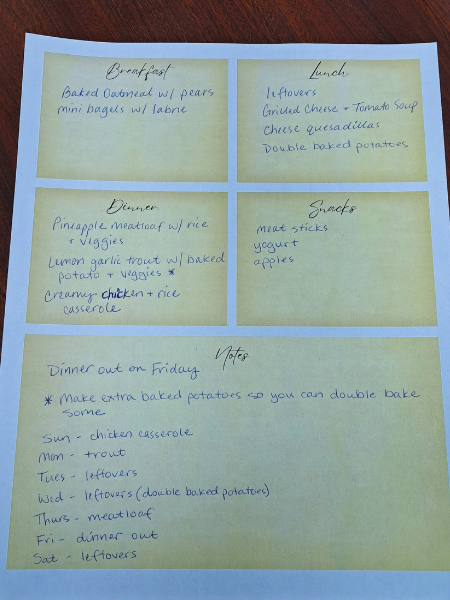 Breakfast
Baked Oatmeal w/ pears
mini bagels w/ labne
Lunch
leftovers
Grilled Cheese + Tomato Soup
Cheese quesadillas
Double baked potatoes
Dinner
Pineapple meatloaf w/ rice
+ veggies
Lemon garlic trout w/ baked
potato + veggies *
Creamy chicken + rice
casserole
Snacks
meat sticks
yogurt
apples
Notes
Dinner out on Friday
* Make extra baked potatoes so you can double bake
some
Sun - chicken casserole
Mon - trout
Tues - leftovers
Wed - leftovers (double baked potatoes)
Thurs - meatloaf
Fri - dinner out
Sat - leftovers